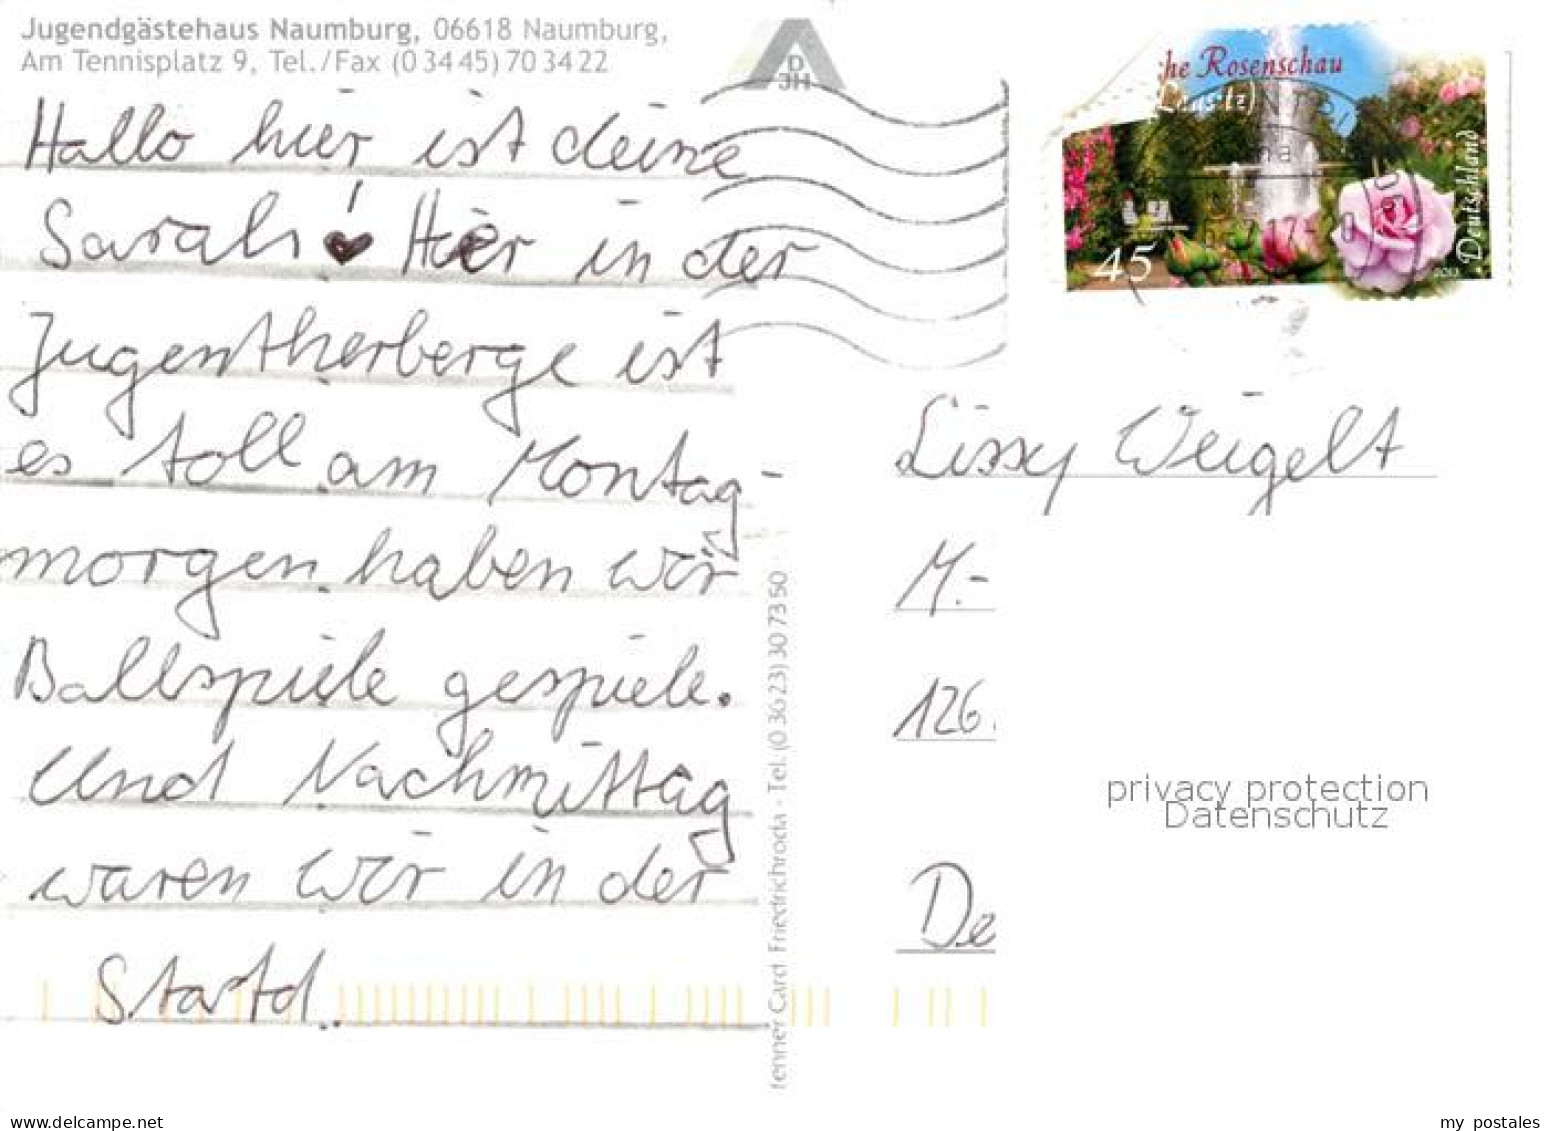 Jugendgästehaus Naumburg, 06618 Naumburg,
Am Tennisplatz 9, Tel./Fax (0 34 45) 70 34 22
D
JH
Hallo hier ist deine
Sarah! ♥ Hier in der
Jugentherberge ist
es toll am Montag-
morgen haben wir
Ballspiele gespiele.
Und Nachmittag
waren wir in der
Startd.
che Rosenschau
(Lausitz)
Deutschland
45
2013
Lissy Weigelt
M.-
126.
De
privacy protection
Datenschutz
Card Friedrichroda - Tel. (0 36 23) 30 73 50
delcampe.net
my_postales